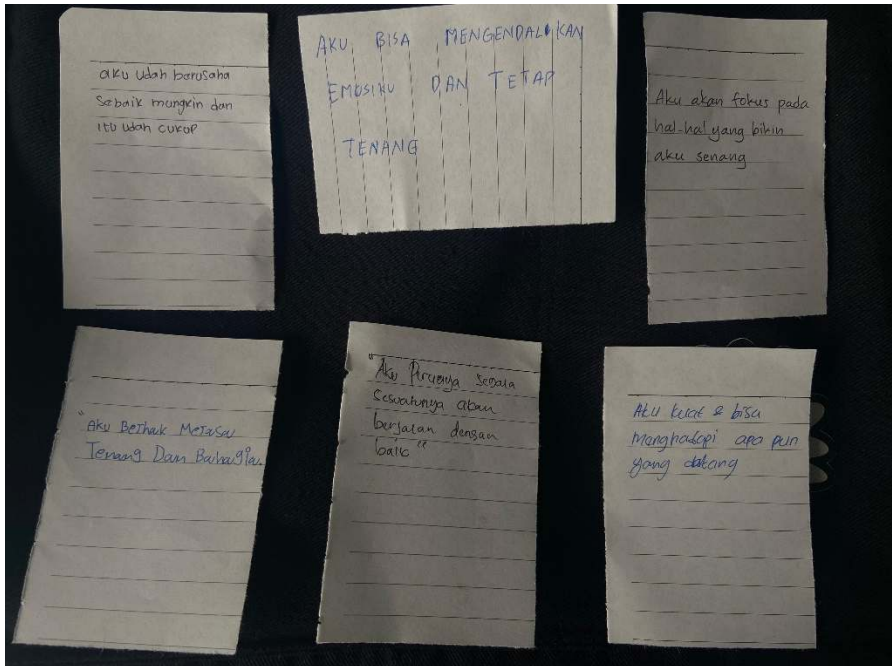 aku udah berusaha
sebaik mungkin dan
itu udah cukup
AKU BISA MENGENDALIKAN
EMOSIKU DAN TETAP
TENANG
Aku akan fokus pada
hal-hal yang bikin
aku senang
"Aku Berhak Merasa
Tenang Dan Bahagia.
"Aku Percaya segala
sesuatunya akan
berjalan dengan
baik"
Aku kuat & bisa
menghadapi apa pun
yang datang